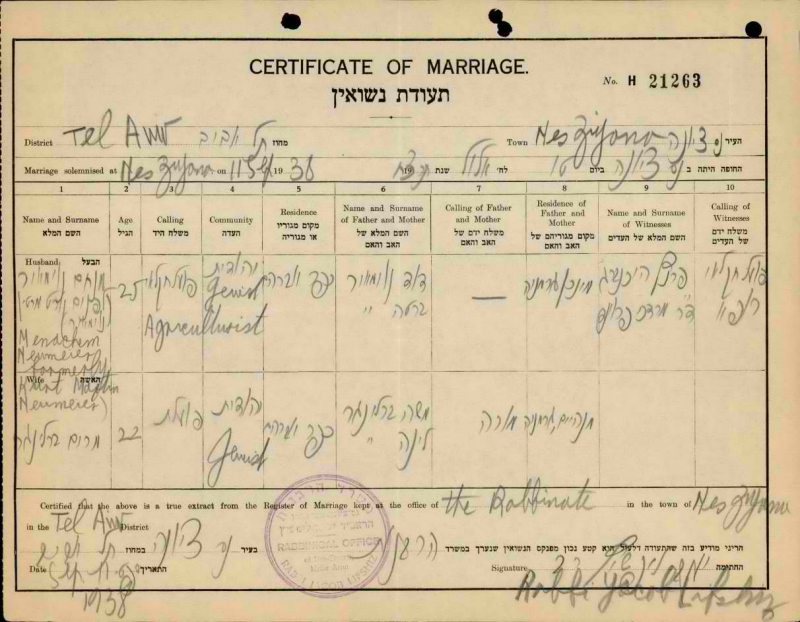 CERTIFICATE OF MARRIAGE.
תעודת נשואין
No. H 21263
District Tel Aviv תל אביב מחוז
Town Nes Ziyona נס ציונה העיר
Marriage solemnised at Nes Ziyona on 11 Sept 1938
החופה היתה ב נס ציונה ביום טו לח' אלול שנת
1 2 3 4 5 6 7 8 9 10
Name and Surname
השם המלא
Age
הגיל
Calling
משלח היד
Community
העדה
Residence
מקום מגוריו
או מגוריה
Name and Surname
of Father and Mother
השם המלא של
האב והאם
Calling of Father
and Mother
משלח ידם של
האב והאם
Residence of
Father and
Mother
מקום מגוריהם של
האב והאם
Name and Surname
of Witnesses
השם המלא של העדים
Calling of
Witnesses
משלח ידם
של העדים
Husband: הבעל
מנחם נוימאייר
Menachem
Neumeier
formerly
Kurt Martin
Neumeier)
25
פועל חקלאי
Agriculturist
יהודית
Jewish
דוד נוימאייר
ברטה "
—
גרמניה
פועל חקלאי
Wife האשה
מרים ברלינגר
22
פועלת
יהודית
Jewish
משה ברלינגר
לינה "
מורה
מנהיים גרמניה
Certified that the above is a true extract from the Register of Marriage kept at the office of the Rabbinate in the town of Nes Ziyona
in the Tel Aviv District
הריני מודיע בזה שהתעודה דלעיל היא קטע נכון מפנקס הנשואין שנערך במשרד הרבנות
בעיר נס ציונה במחוז תל אביב
Date 11 Sept התאריך
1938
Signature החתימה
Rabbi Jacob Lifshiz
RABBINICAL OFFICE
RABBI JACOB LIFSHITZ